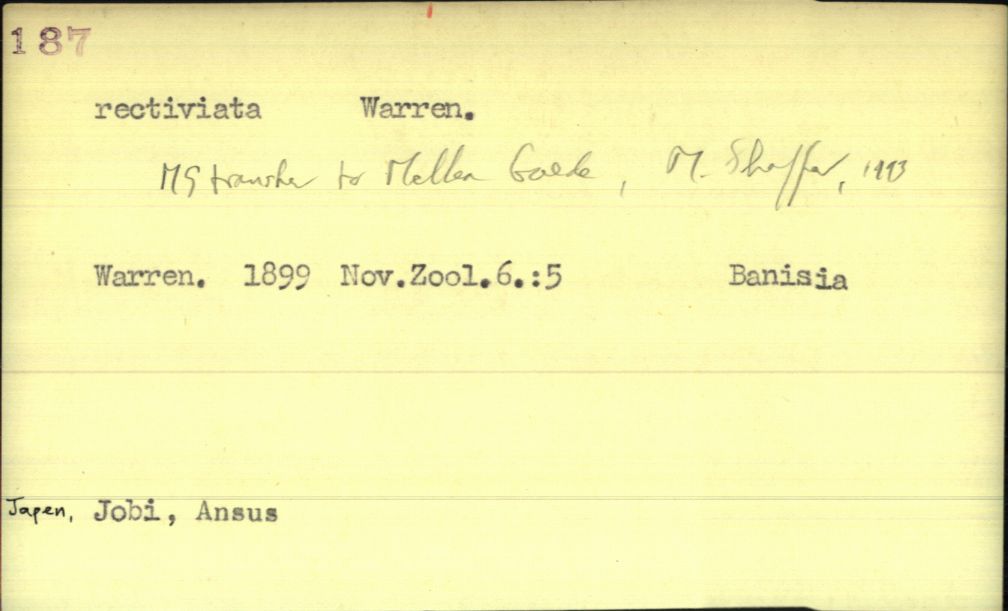 187
rectiviata Warren.
MS transfer to Mellea Gaede, M. Shaffer, 1993
Warren. 1899 Nov.Zool.6.:5 Banisia
Japen, Jobi, Ansus